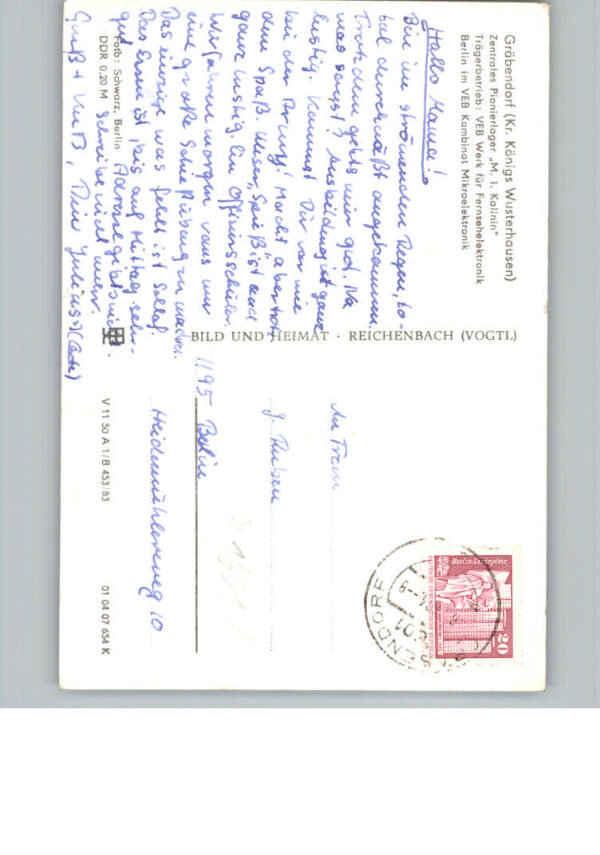 Gräbendorf (Kr. Königs Wusterhausen)
Zentrales Pionierlager „M. I. Kalinin"
Trägerbetrieb: VEB Werk für Fernsehelektronik
Berlin im VEB Kombinat Mikroelektronik
Hallo Mama!
Bin im strömenden Regen, to-
tal durchnäßt angekommen.
Trotzdem gehts mir gut. Na
was sagst? Ausbildung ist ganz
lustig. Kommst Dir vor wie
bei der Army! Macht aber trotz
dem Spaß. Unser „Spieß" ist auch
ganz lustig. Ein Offiziersschüler.
Wir fahren morgen raus um
eine große Schießübung zu machen.
Das einzige was fehlt ist Schlaf.
Das Essen ist, bis auf Mittag, sehr
gut. Adresse gibts nicht.
Schreibe nicht mehr.
Gruß + Kuß, Dein Julius
Foto: Schwarz, Berlin
DDR 0,20 M
BILD UND HEIMAT · REICHENBACH (VOGTL)
V 11 50 A 1/B 453/83
01 04 07 654 K
An Frau
G. Ruben
1195 Berlin
Heidemühlerweg 10
Berlin-Leninplatz
DEUTSCHE DEMOKRATISCHE REPUBLIK
20